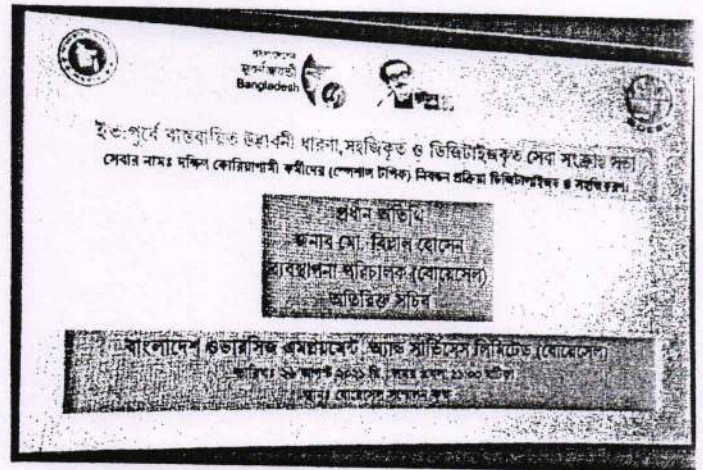 বাংলাদেশের
সুবর্ণজয়ন্তী
Bangladesh
ইতঃপূর্বে বাস্তবায়িত উদ্ভাবনী ধারণা, সহজিকৃত ও ডিজিটাইজকৃত সেবা সংক্রান্ত সভা
সেবার নামঃ দক্ষিণ কোরিয়াগামী কর্মীদের (স্পেশাল টপিক) নিবন্ধন প্রক্রিয়া ডিজিটালাইজড ও সহজিকরণ।
প্রধান অতিথি
জনাব মো. বিল্লাল হোসেন
ব্যবস্থাপনা পরিচালক (বোয়েসেল)
অতিরিক্ত সচিব
বাংলাদেশ ওভারসিজ এমপ্লয়মেন্ট অ্যান্ড সার্ভিসেস লিমিটেড (বোয়েসেল)
তারিখঃ ২৯ আগস্ট ২০২১ খ্রি. সময় সকাল ১১:০০ ঘটিকা
স্থানঃ বোয়েসেল সম্মেলন কক্ষ